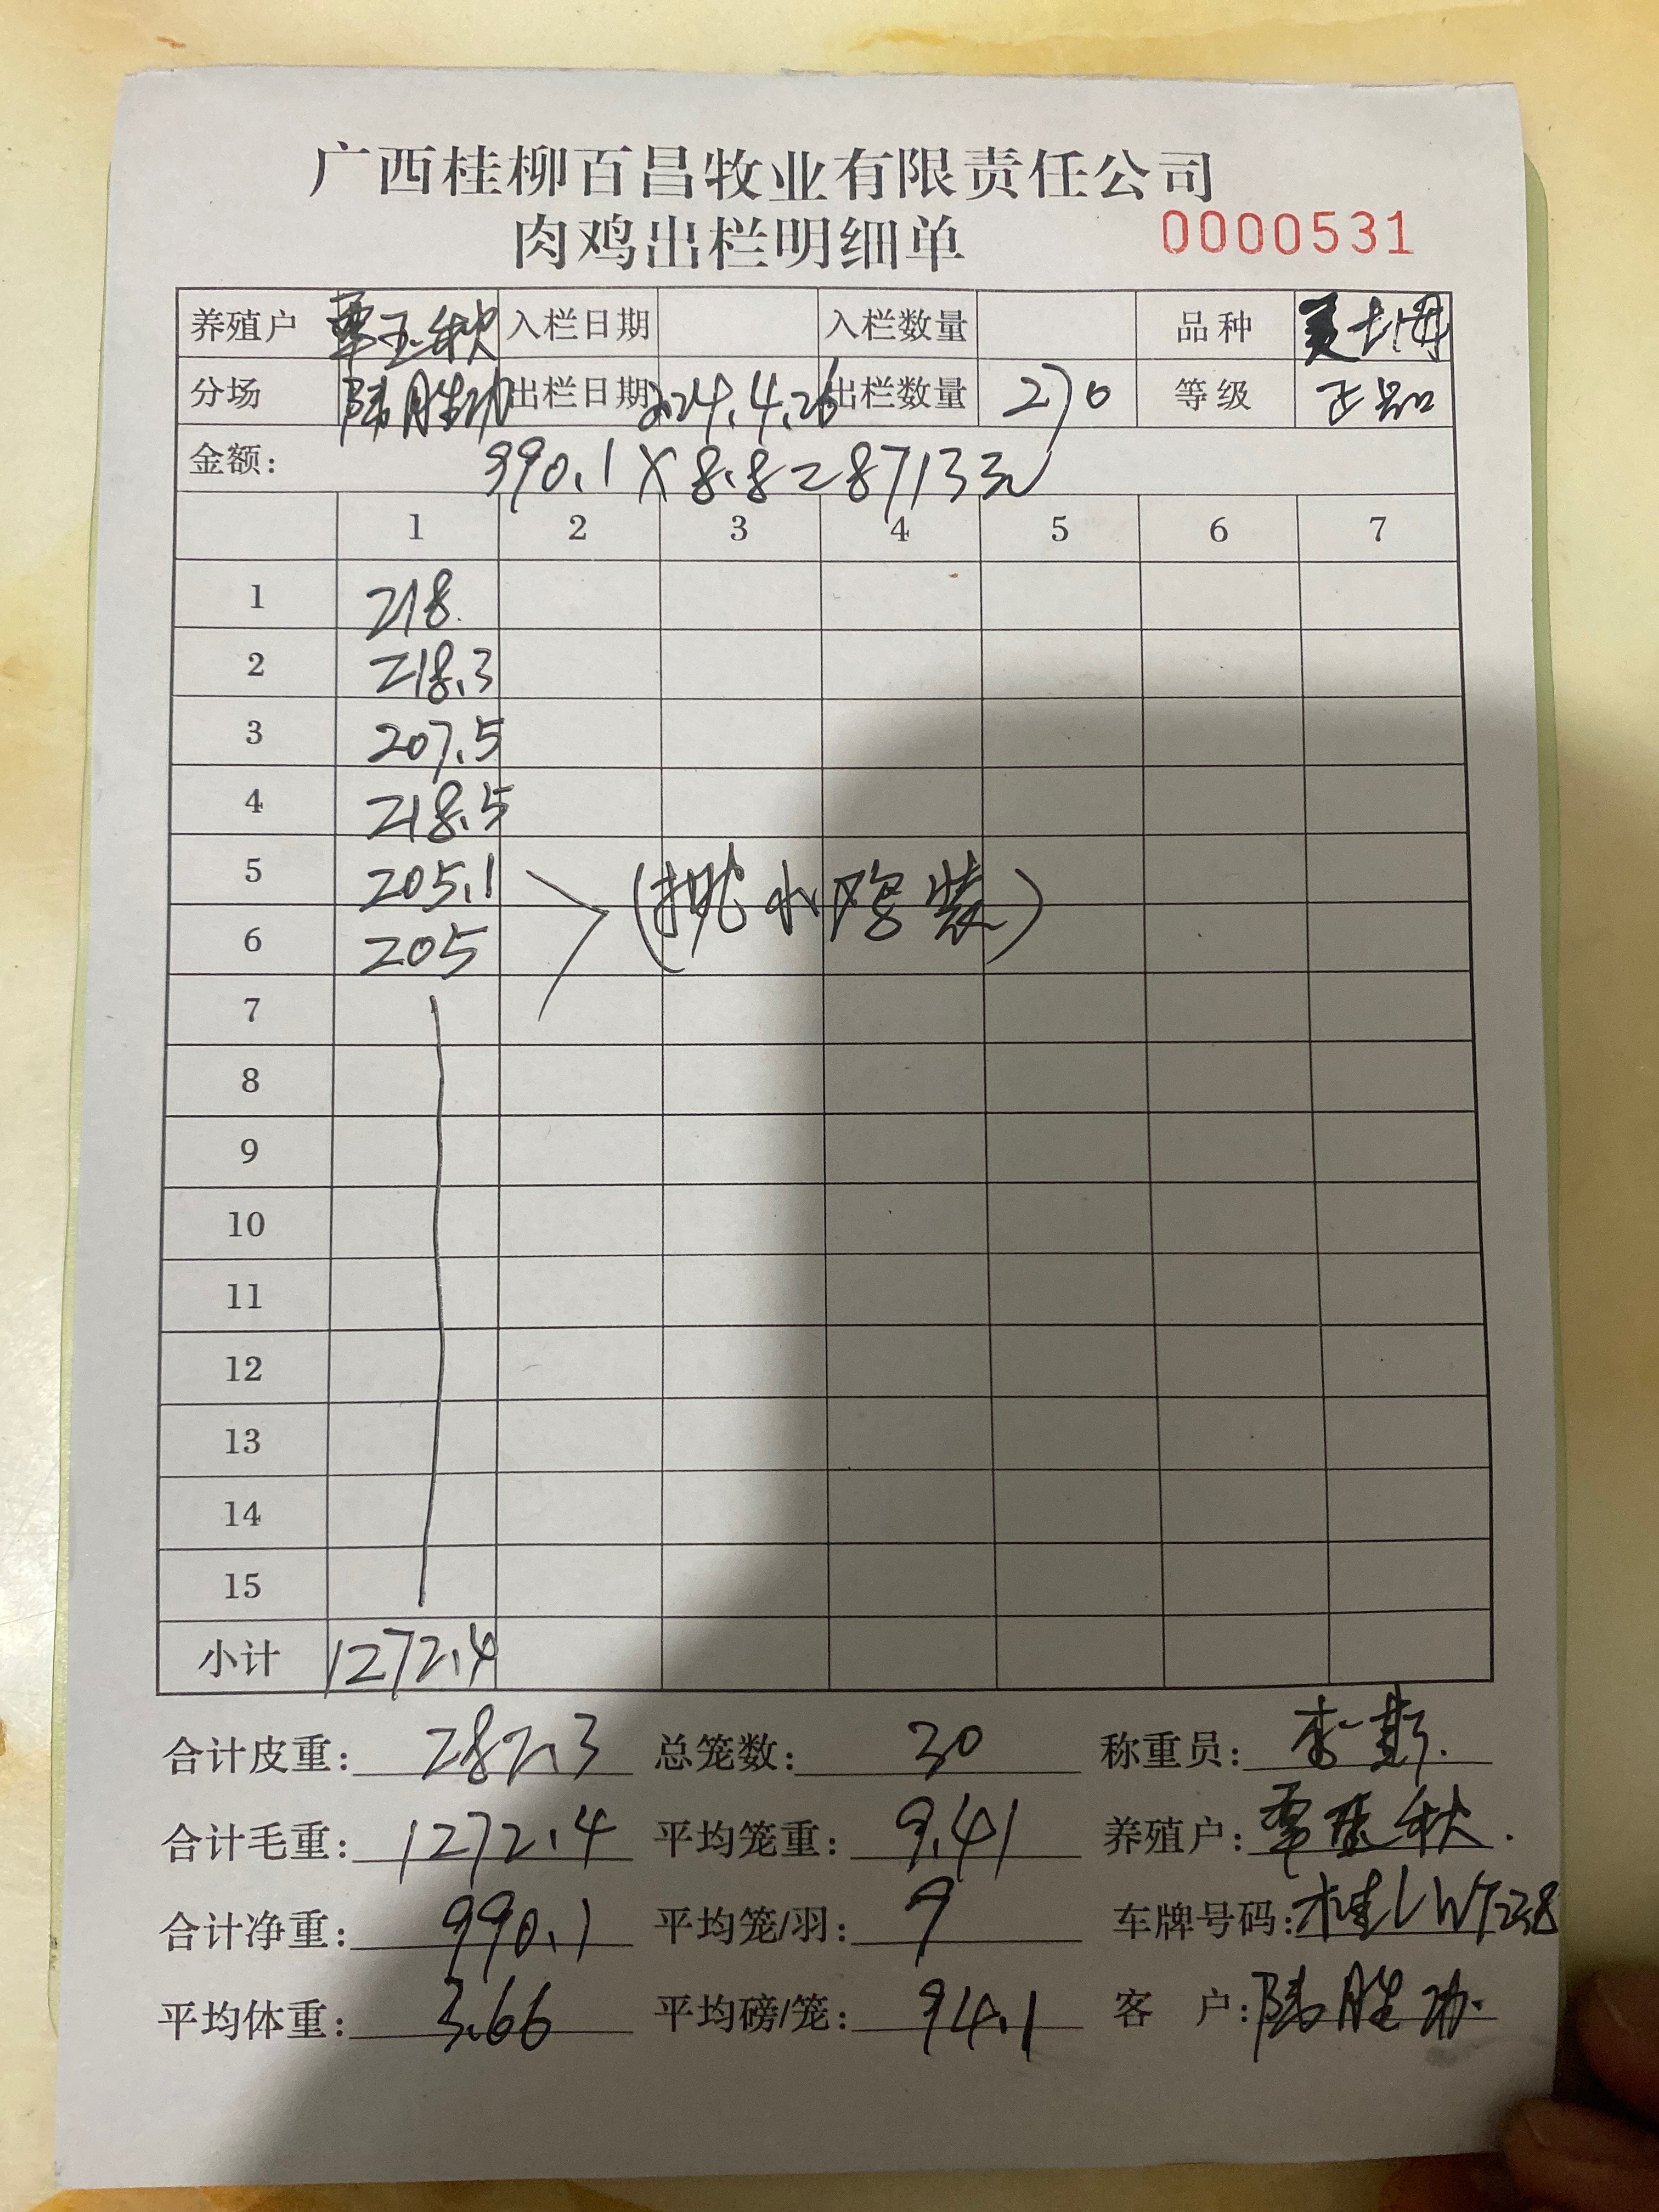 广西桂柳百昌牧业有限责任公司
肉鸡出栏明细单 0000531
养殖户 覃玉秋 入栏日期 入栏数量 品种
分场 陆胜功 出栏日期 2024.4.26 出栏数量 270 等级 正品
金额: 990.1 X 8.8 = 8713元
1 2 3 4 5 6 7
1 218
2 218.3
3 207.5
4 218.5
5 205.1 (挑小鸡装)
6 205
7
8
9
10
11
12
13
14
15
小计 1272.4
合计皮重: 282.3 总笼数: 30 称重员:
合计毛重: 1272.4 平均笼重: 9.41 养殖户: 覃玉秋
合计净重: 990.1 平均笼/羽: 9 车牌号码:
平均体重: 3.66 平均磅/笼: 94.1 客 户: 陆胜功